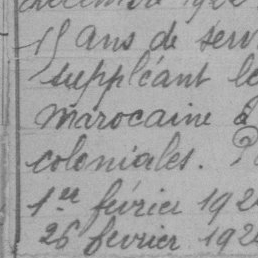 15 ans de serv
suppléant le
marocaine
coloniales.
1er février 192
26 février 192